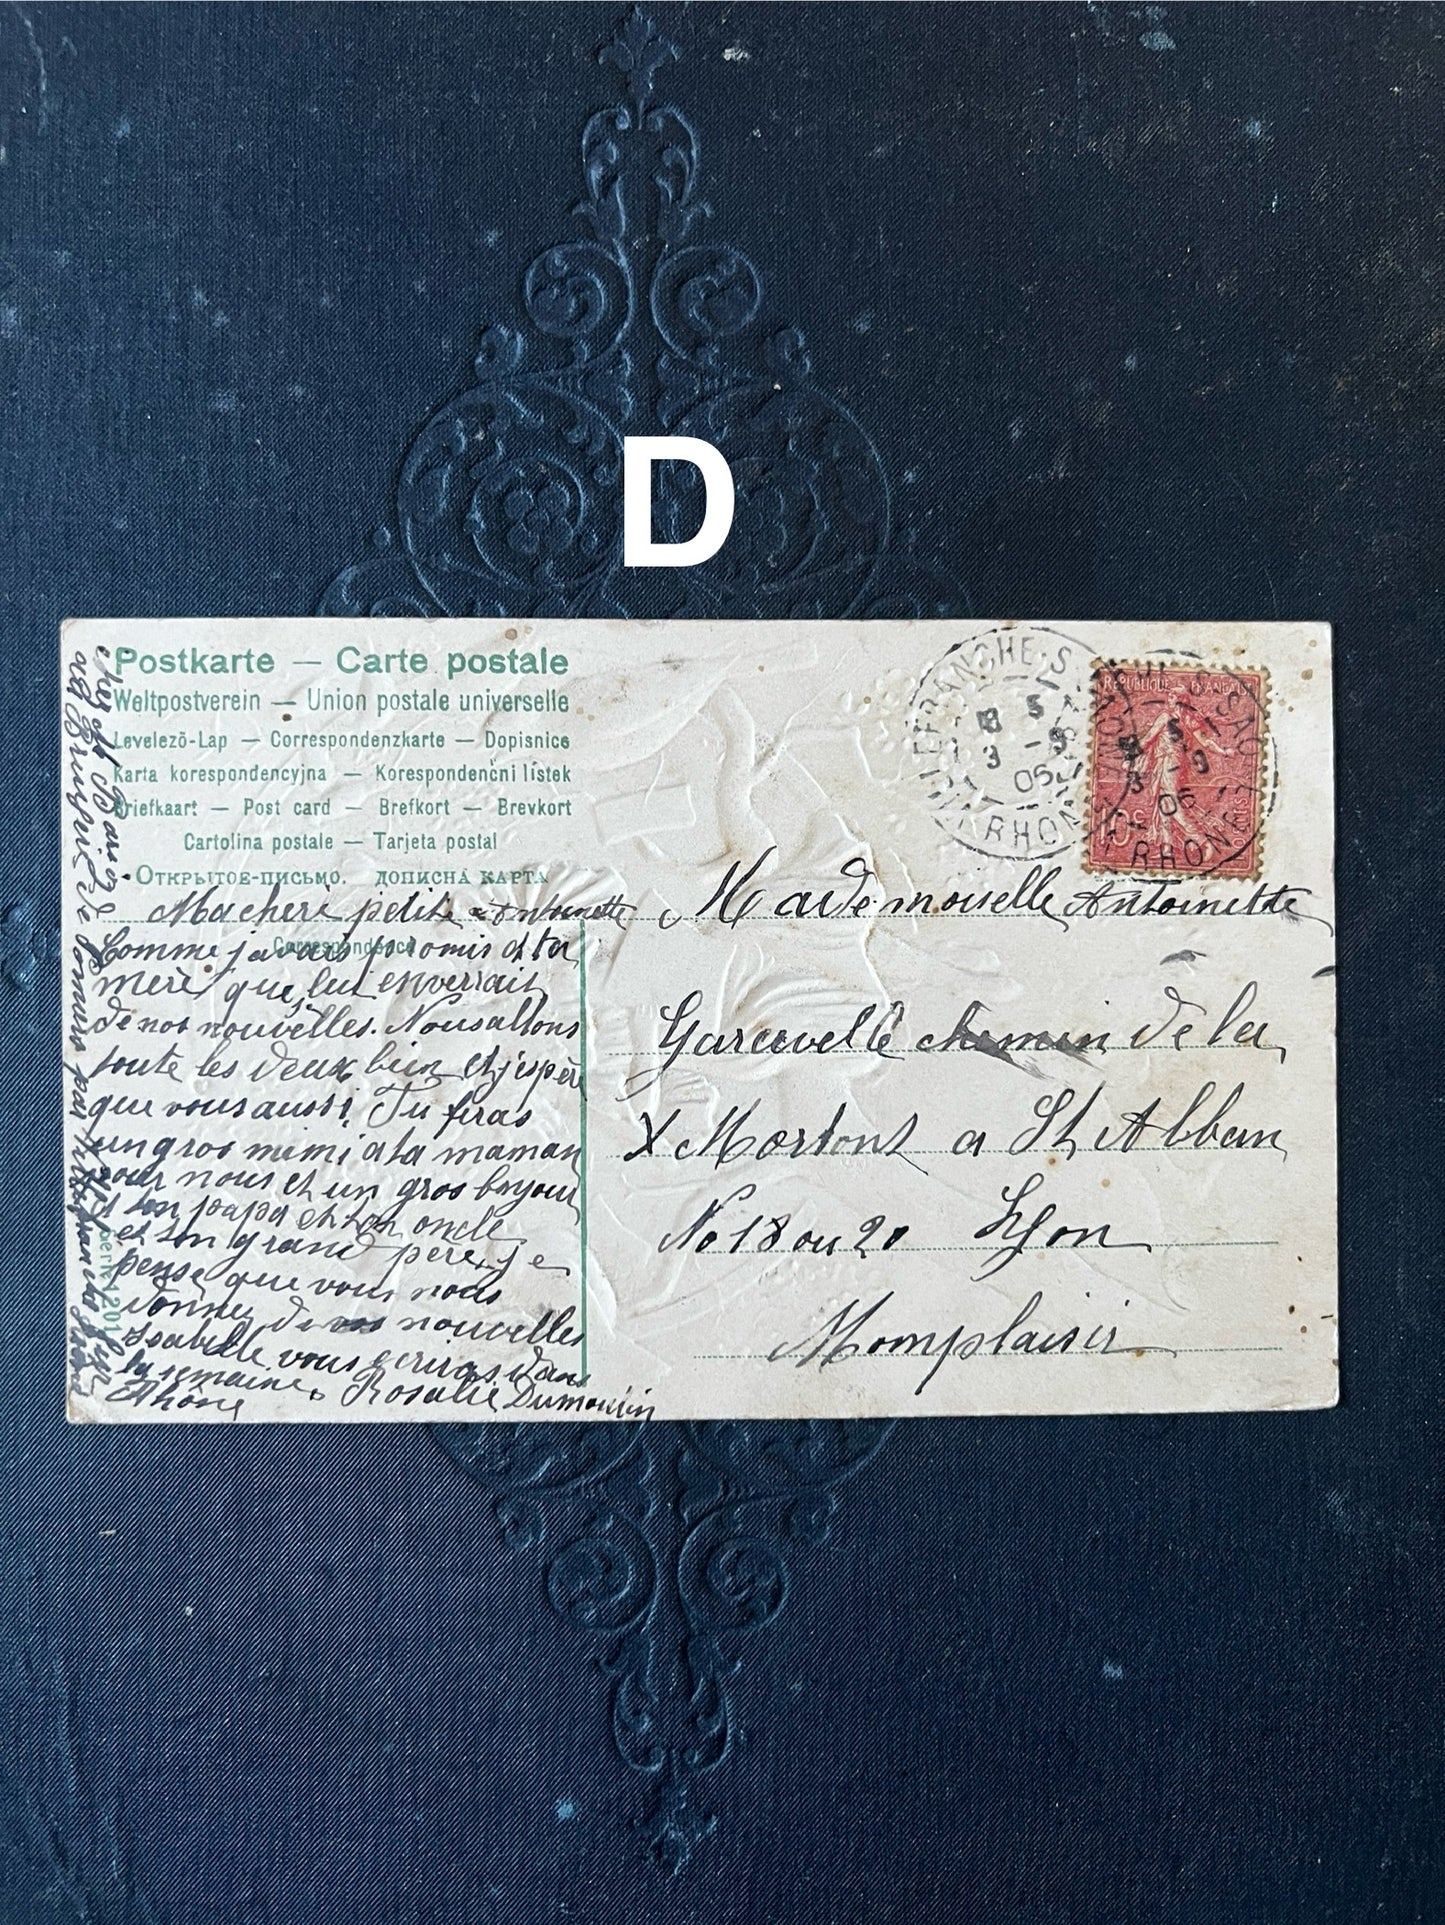 D
Postkarte — Carte postale
Weltpostverein — Union postale universelle
Levelezö-Lap — Correspondenzkarte — Dopisnice
Karta korespondencyjna — Korespondenční lístek
Briefkaart — Post card — Brefkort — Brevkort
Cartolina postale — Tarjeta postal
Открытое-письмо. дописнa карта
Correspondence
REPUBLIQUE FRANÇAISE
10c POSTES
LEFRANCHE-S
RHONE
3 -9
06
RHONE
5
3 -9
06
Macheré petite Antoinette
Comme javais promis a ta
merè que lui enverrait
de nos nouvèlles. Nous allons
toute les deux bien et j'espère
que vous aussi Tu feras
un gros mimi a ta maman
pour nous et un gros bonjour
a ton papa et ton oncle
et ton grand père, je
pense que vous nous
donner de nouvelles
Isabelle vous ecriras dans
la semaine. Rosalie Dumoulin
Rhône
chez Mr
par
Serie 1201
Mademouelle Antoinette
Garavelle chemin de la
X a St Alban
No 18 ou 20 Lyon
Momplaisir